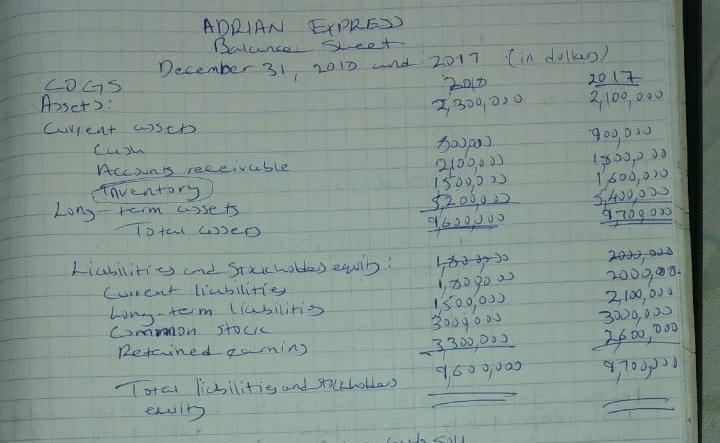 ADRIAN EXPRESS
Balance Sheet
December 31, 2018 and 2017 (in dollars)
2018 2017
COGS 2,300,000 2,100,000
Assets:
Current assets
Cash 800,000 900,000
Accounts receivable 2,100,000 1,800,000
Inventory 1,500,000 1,600,000
Long-term assets 5,200,000 5,400,000
Total assets 9,600,000 9,700,000
Liabilities and Stockholders equity: 1,800,000 2000,000
Current liabilities 1,800,000 2000,000
Long-term liabilities 1,500,000 2,100,000
Common stock 3000,000 3000,000
Retained earning 3,300,000 2,600,000
Total liabilities and stockholders 9,600,000 9,700,000
equity